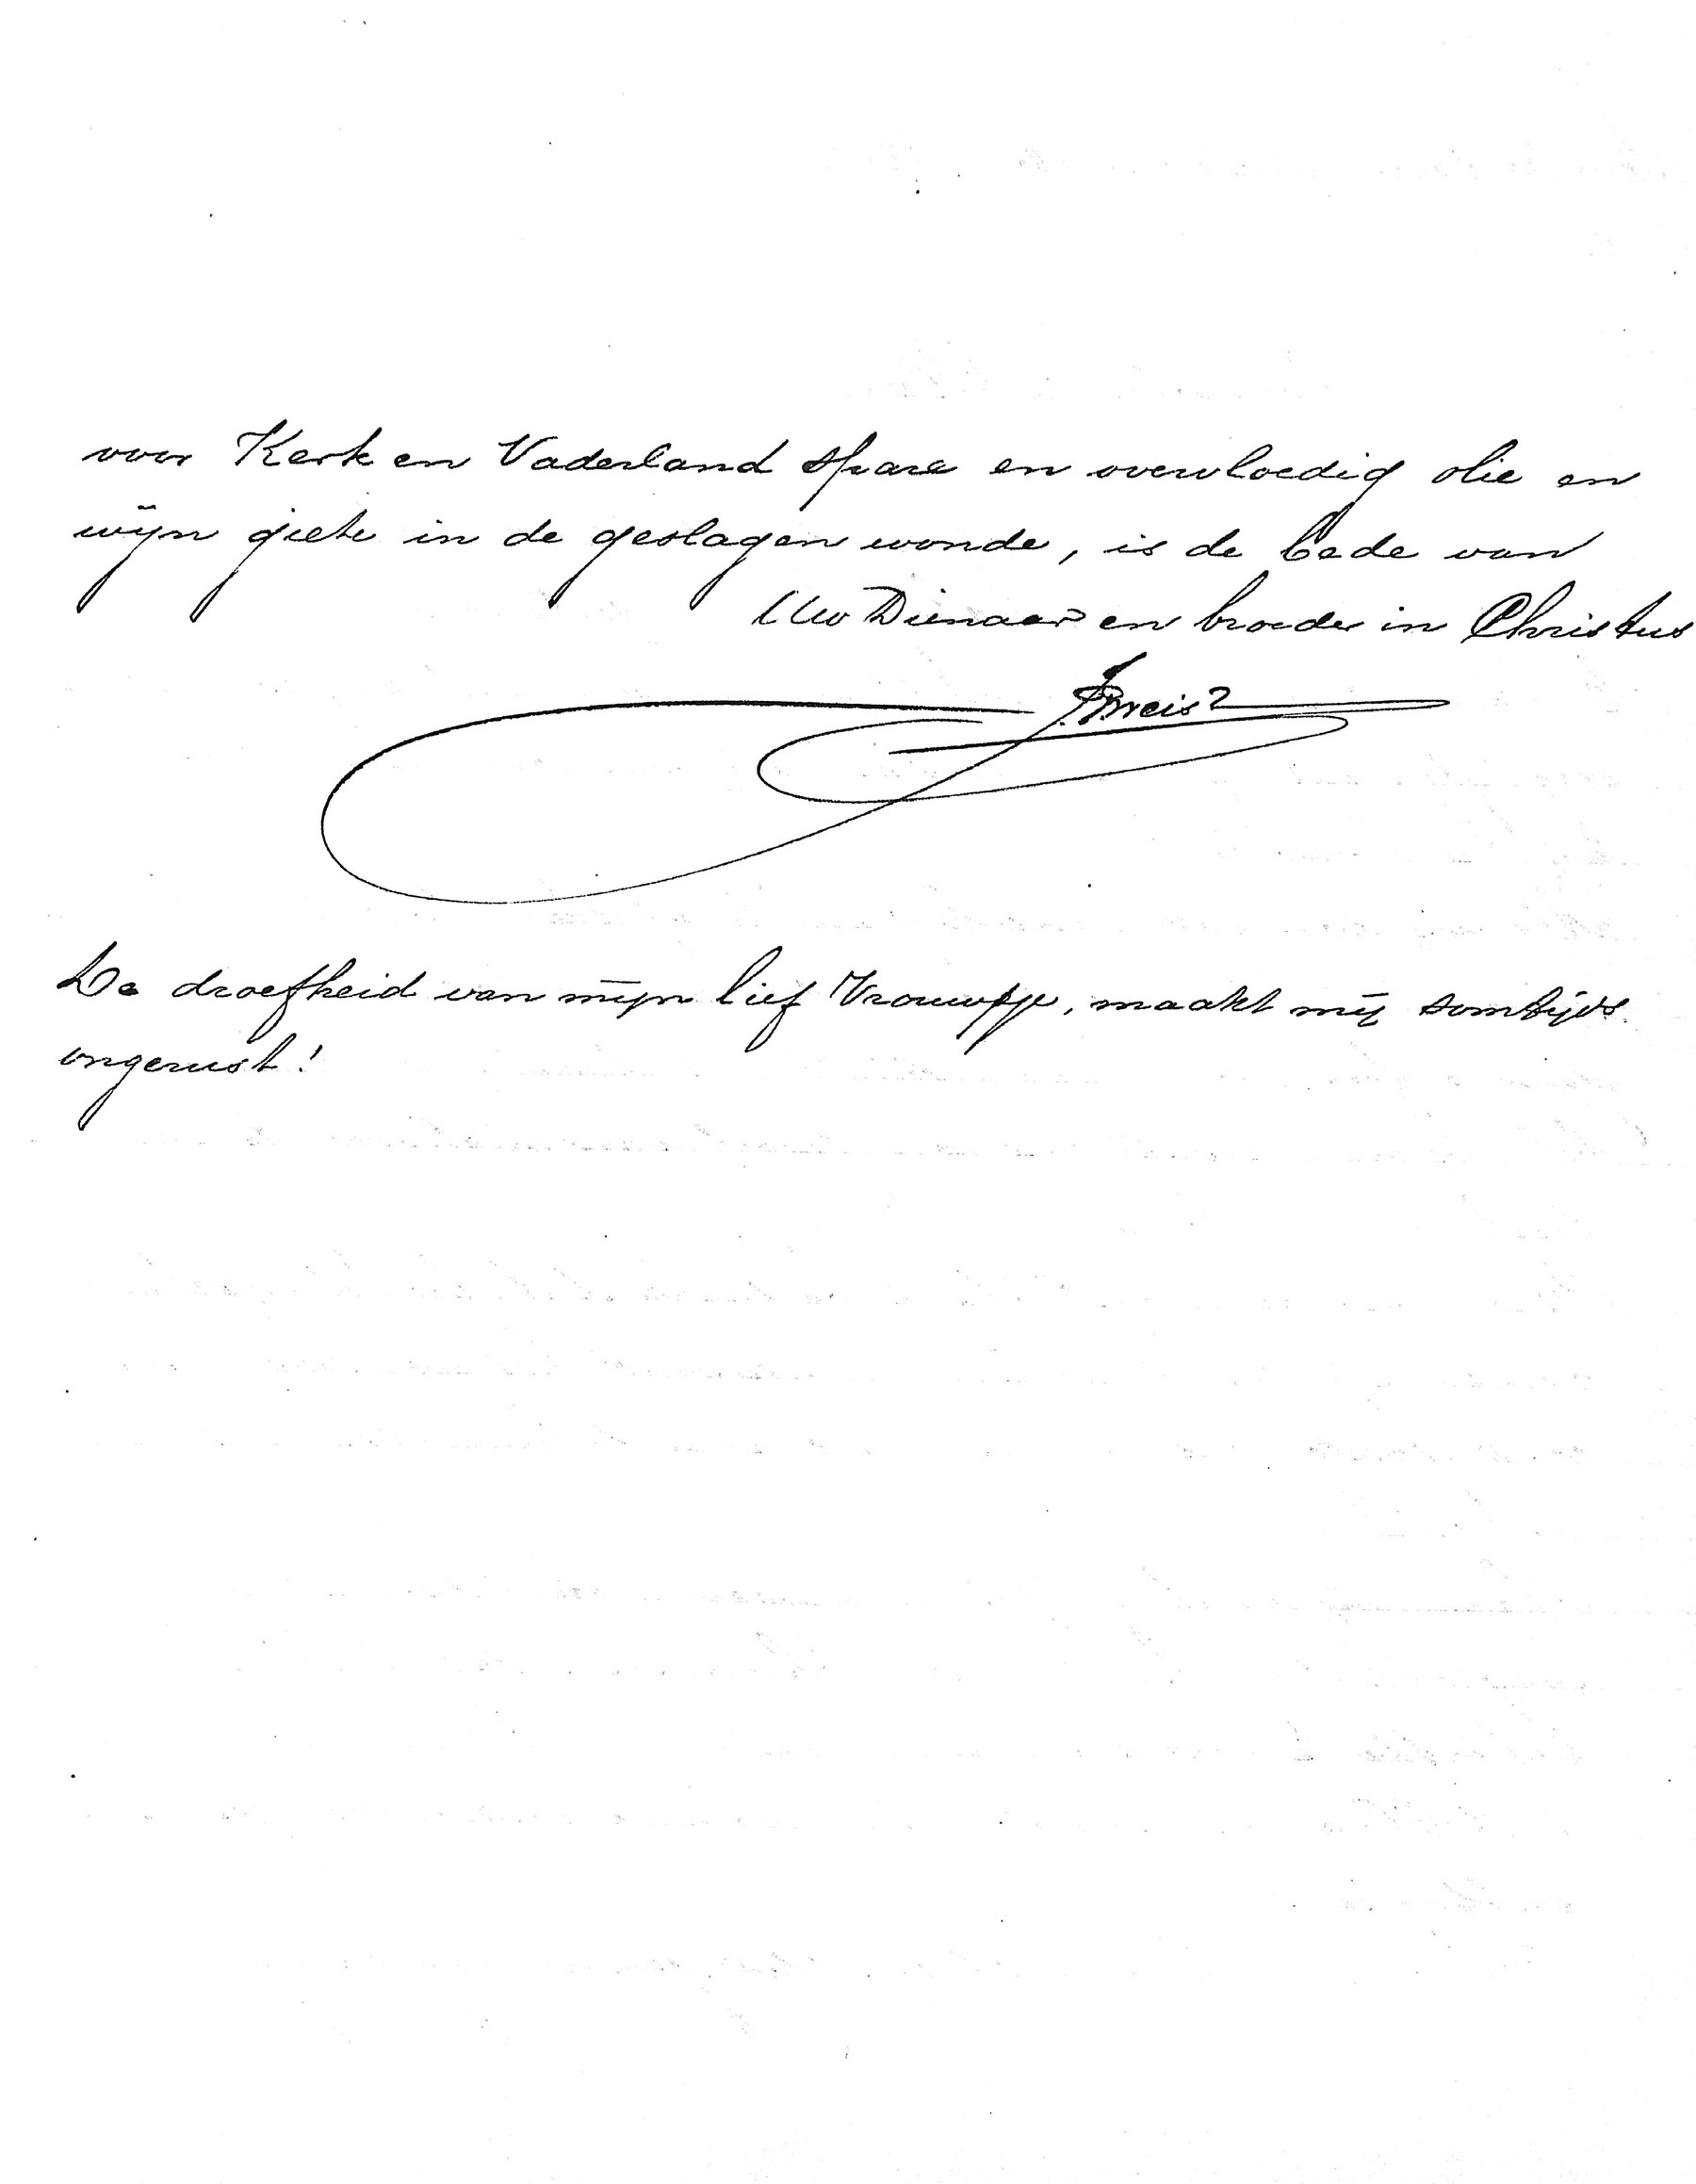 voor Kerk en Vaderland spare en overvloedig olie en
wijn giete in de geslagen wonde, is de bede van
Uw Dienaar en broeder in Christus
De droefheid van mijn lief Vrouwtje, maakt mij somtijds
ongerust!